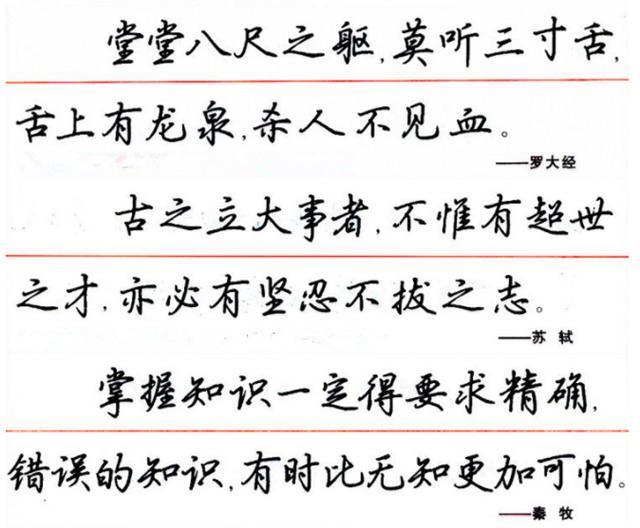 堂堂八尺之躯,莫听三寸舌,
舌上有龙泉,杀人不见血。
——罗大经
古之立大事者,不惟有超世
之才,亦必有坚忍不拔之志。
——苏 轼
掌握知识一定得要求精确,
错误的知识,有时比无知更加可怕。
——秦 牧